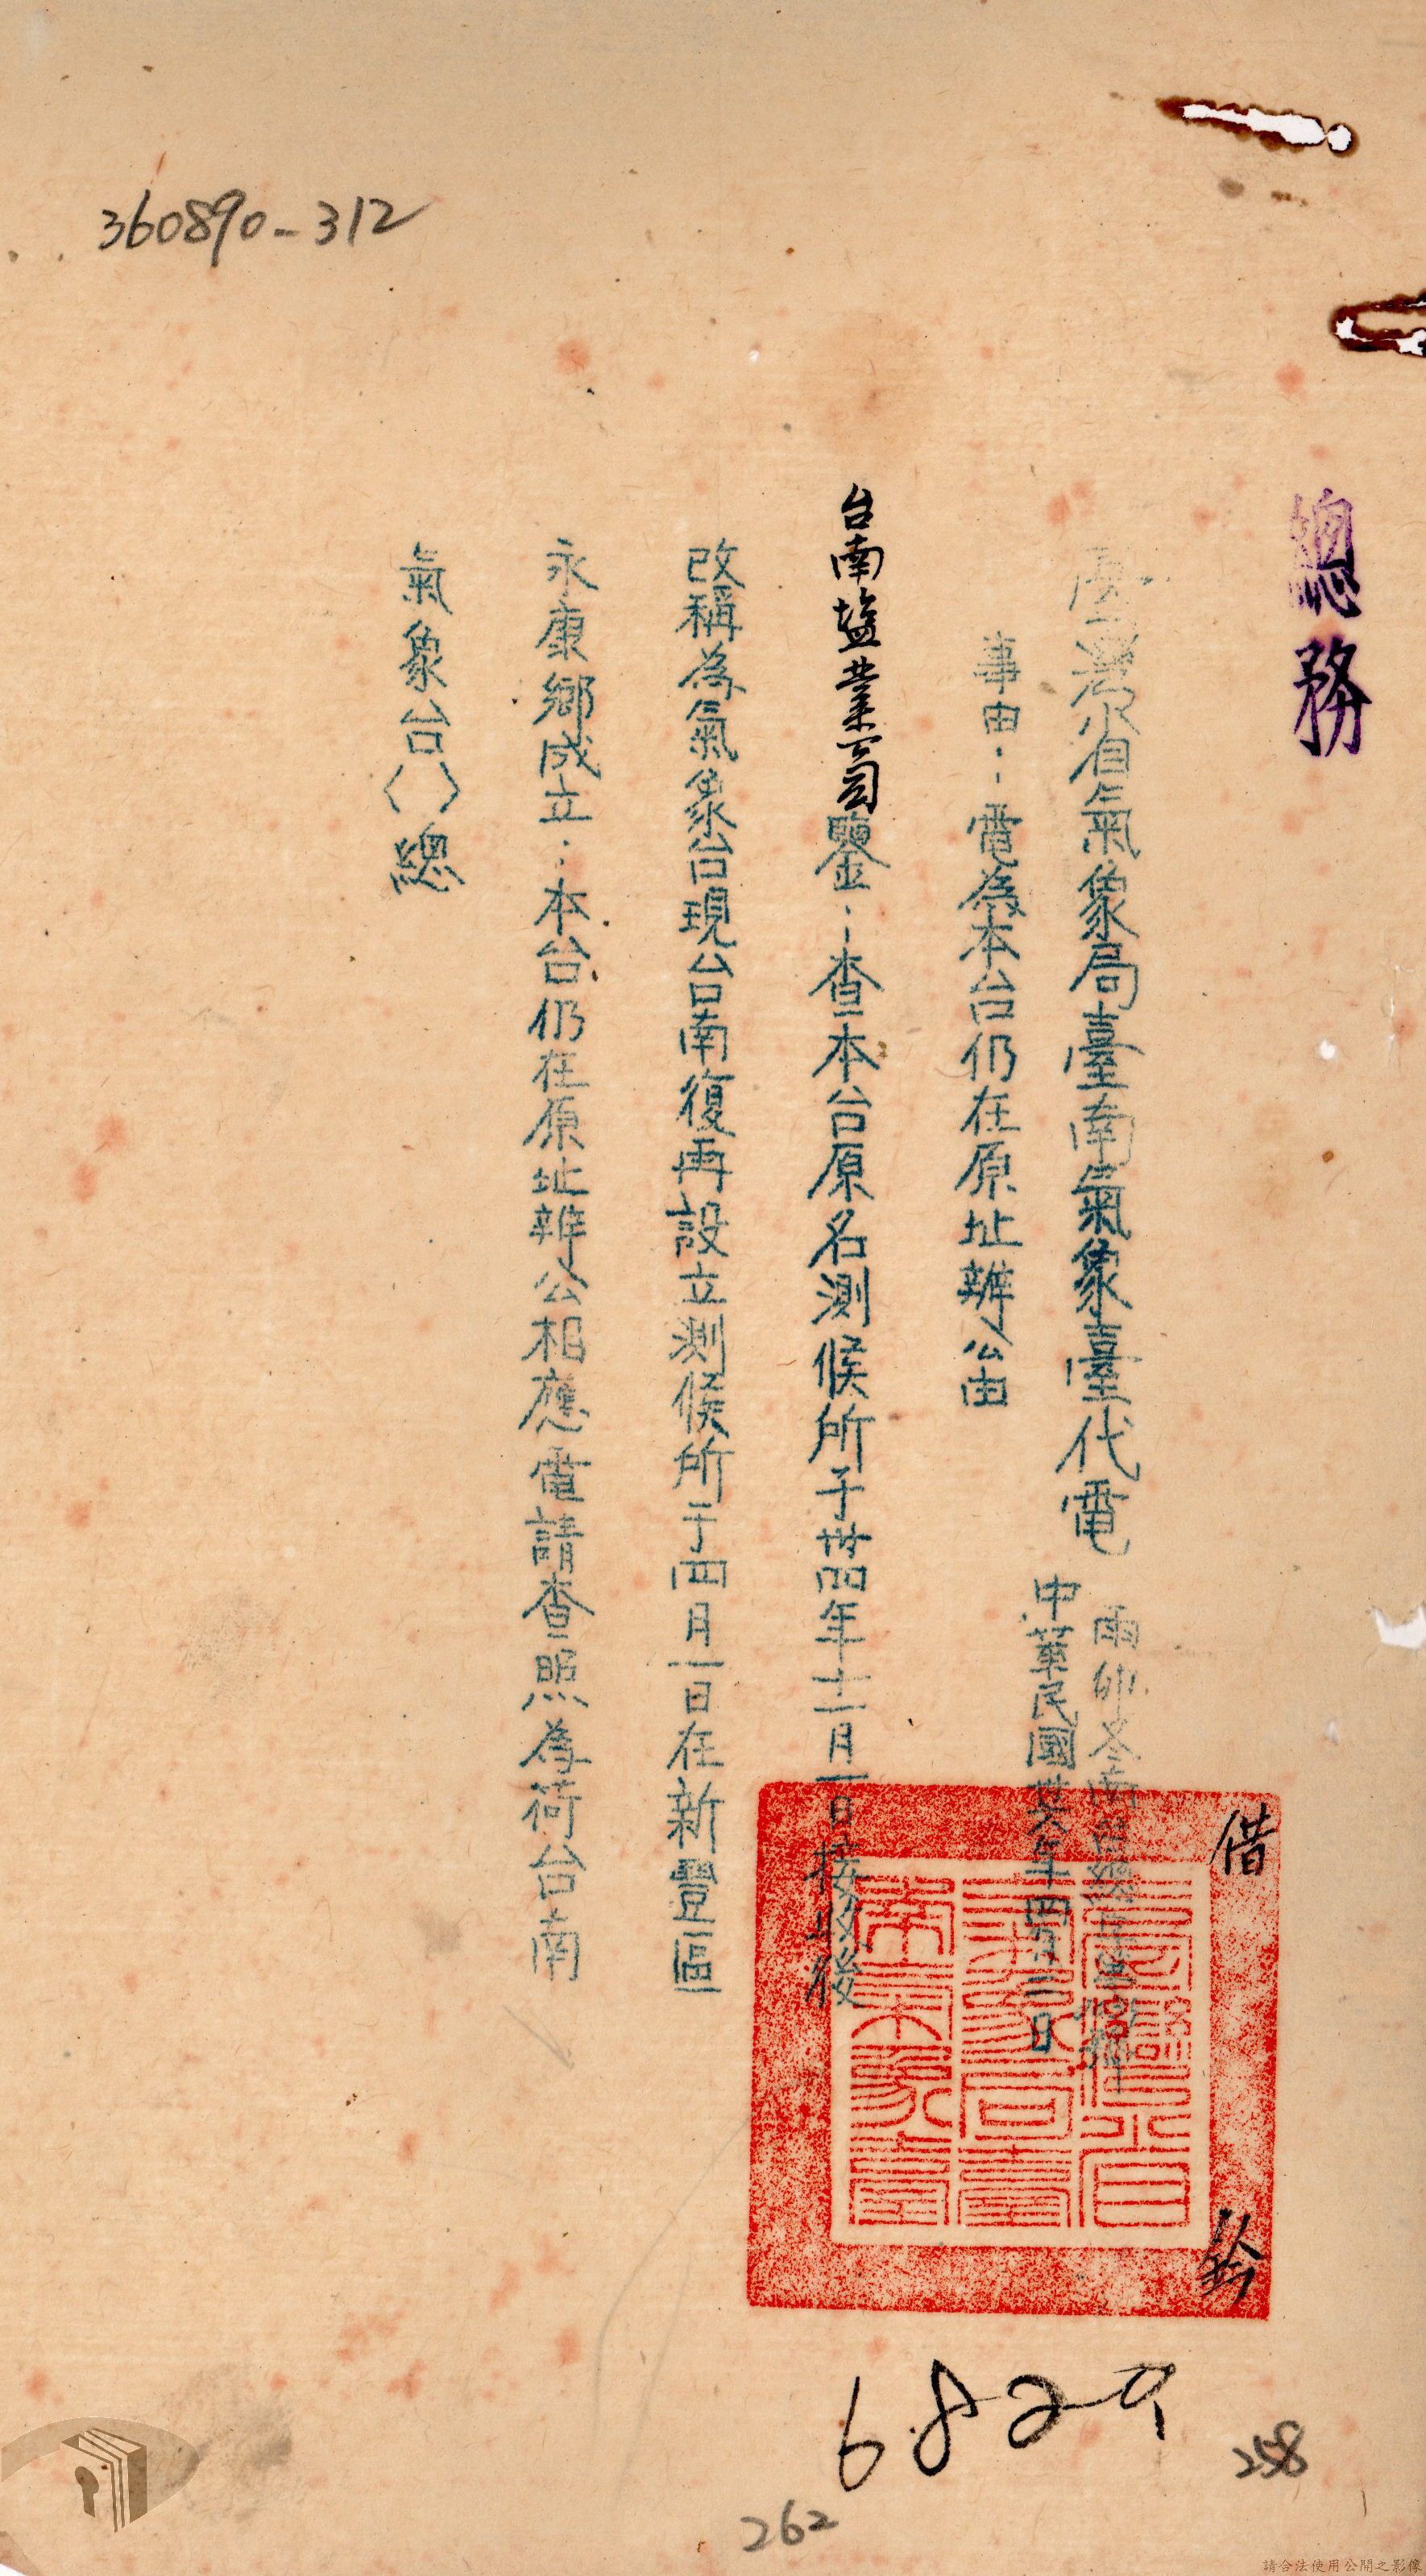 總務
臺灣省氣象局臺南氣象臺代電
中華民國卅六年四月二日
事由：電為本台仍在原址辦公由
台南塩業公司鑒：查本台原名測候所于卅四年十二月一日接收後
改稱為氣象台現台南復再設立測候所于四月一日在新豐區
永康鄉成立：本台仍在原址辦公相應電請查照為荷台南
氣象台〈〉總
借
鈐
360890-312
6829
258
262
請合法使用公開之影像